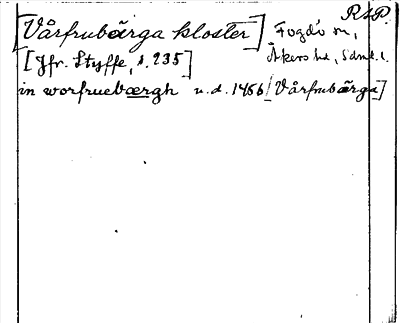 RSP.
[Vårfrubärga kloster] Fogdö sn,
[Jfr. Styffe, s. 235] Åkers hd, Södml.
in worfruebærgh u.d. 1456 [Vårfrubärga]